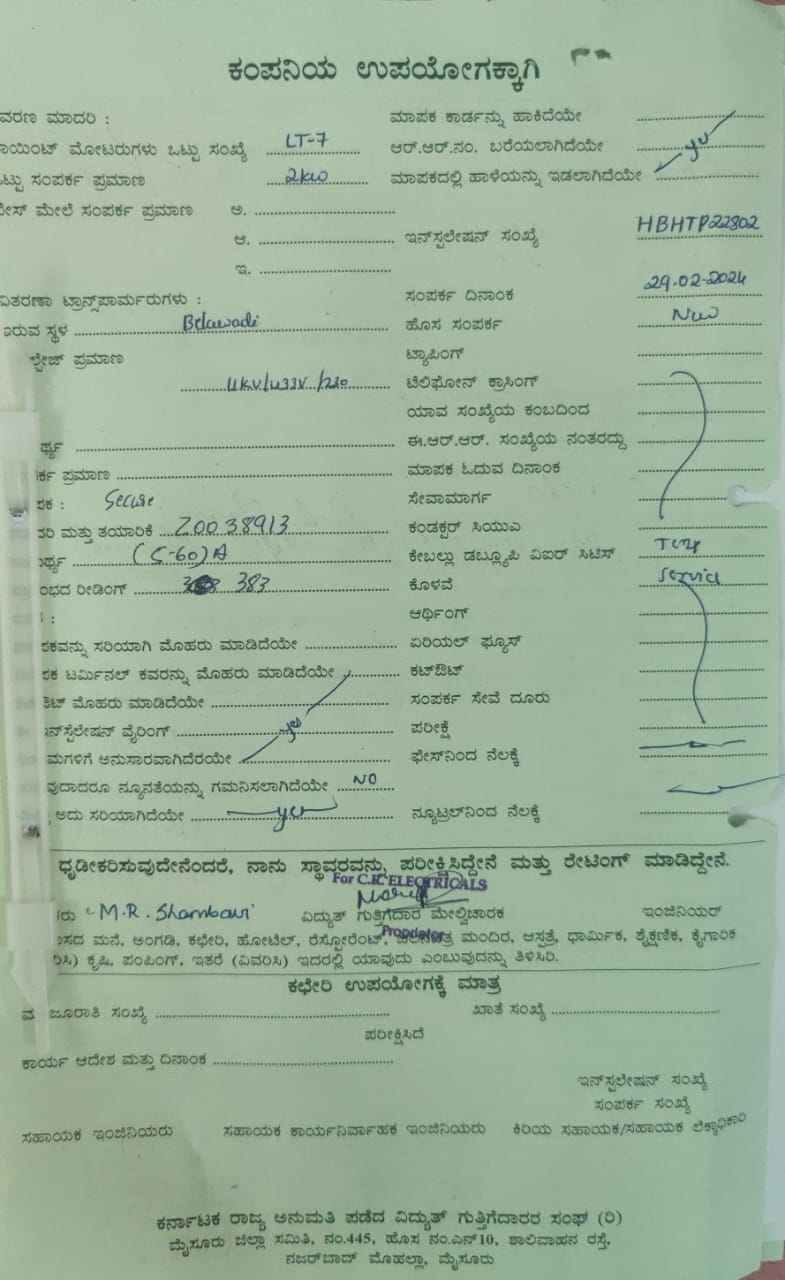 ಕಂಪನಿಯ ಉಪಯೋಗಕ್ಕಾಗಿ
ವರಣ ಮಾದರಿ : ಮಾಪಕ ಕಾರ್ಡನ್ನು ಹಾಕಿದೆಯೇ
ಾಯಿಂಟ್ ಮೋಟರುಗಳು ಒಟ್ಟು ಸಂಖ್ಯೆ LT-7 ಆರ್.ಆರ್.ನಂ. ಬರೆಯಲಾಗಿದೆಯೇ yes
ಒಟ್ಟು ಸಂಪರ್ಕ ಪ್ರಮಾಣ 2kw ಮಾಪಕದಲ್ಲಿ ಹಾಳೆಯನ್ನು ಇಡಲಾಗಿದೆಯೇ
ೇಸ್ ಮೇಲೆ ಸಂಪರ್ಕ ಪ್ರಮಾಣ ಅ.
ಆ. ಇನ್‌ಸ್ಟಲೇಷನ್ ಸಂಖ್ಯೆ HBHTP22802
ಇ.
ವಿತರಣಾ ಟ್ರಾನ್ಸ್‌ಪಾರ್ಮರುಗಳು : ಸಂಪರ್ಕ ದಿನಾಂಕ 29-02-2024
ಇರುವ ಸ್ಥಳ Belawadi ಹೊಸ ಸಂಪರ್ಕ New
ಲ್ಟೇಜ್ ಪ್ರಮಾಣ ಟ್ಯಾಪಿಂಗ್
11KV/433V/230 ಟೆಲಿಫೋನ್ ಕ್ರಾಸಿಂಗ್
ಯಾವ ಸಂಖ್ಯೆಯ ಕಂಬದಿಂದ
ರ್ಥ್ಯ ಈ.ಆರ್.ಆರ್. ಸಂಖ್ಯೆಯ ನಂತರದ್ದು
ರ್ಕ ಪ್ರಮಾಣ ಮಾಪಕ ಓದುವ ದಿನಾಂಕ
ಪಕ : Secure ಸೇವಾಮಾರ್ಗ
ದರಿ ಮತ್ತು ತಯಾರಿಕೆ Z0038913 ಕಂಡಕ್ಟರ್ ಸಿಯುಎ
ರ್ಥ್ಯ (5-60)A ಕೇಬಲ್ಲು ಡಬ್ಲ್ಯೂಪಿ ವಿಐರ್ ಸಿಟಿಸ್ Temp
ಂಭದ ರೀಡಿಂಗ್ 383 ಕೊಳವೆ Service
: ಆರ್ಥಿಂಗ್
ಪಕವನ್ನು ಸರಿಯಾಗಿ ಮೊಹರು ಮಾಡಿದೆಯೇ ಏರಿಯಲ್ ಫ್ಯೂಸ್
ಪಕ ಟರ್ಮಿನಲ್ ಕವರನ್ನು ಮೊಹರು ಮಾಡಿದೆಯೇ ಕಟ್‌ಔಟ್
ಕಿಟ್ ಮೊಹರು ಮಾಡಿದೆಯೇ ಸಂಪರ್ಕ ಸೇವೆ ದೂರು
ಇನ್‌ಸ್ಟೆಲೇಷನ್ ವೈರಿಂಗ್ yes ಪರೀಕ್ಷೆ
ಮಗಳಿಗೆ ಅನುಸಾರವಾಗಿದೆರಯೇ ಫೇಸ್‌ನಿಂದ ನೆಲಕ್ಕೆ
ವುದಾದರೂ ನ್ಯೂನತೆಯನ್ನು ಗಮನಿಸಲಾಗಿದೆಯೇ NO
ಅದು ಸರಿಯಾಗಿದೆಯೇ yes ನ್ಯೂಟ್ರಲ್‌ನಿಂದ ನೆಲಕ್ಕೆ
ಧೃಡೀಕರಿಸುವುದೇನೆಂದರೆ, ನಾನು ಸ್ಥಾವರವನ್ನು ಪರೀಕ್ಷಿಸಿದ್ದೇನೆ ಮತ್ತು ರೇಟಿಂಗ್ ಮಾಡಿದ್ದೇನೆ.
For C.K ELECTRICALS
ರು M.R. Shambavi ವಿದ್ಯುತ್ ಗುತ್ತಿಗೆದಾರ ಮೇಲ್ವಿಚಾರಕ ಇಂಜಿನಿಯರ್
Proprietor
ಾಸದ ಮನೆ, ಅಂಗಡಿ, ಕಛೇರಿ, ಹೋಟೆಲ್, ರೆಸ್ಟೋರೆಂಟ್, ಚಲನಚಿತ್ರ ಮಂದಿರ, ಆಸ್ಪತ್ರೆ, ಧಾರ್ಮಿಕ, ಶೈಕ್ಷಣಿಕ, ಕೈಗಾರಿಕ
ರಿಸಿ) ಕೃಷಿ, ಪಂಪಿಂಗ್, ಇತರೆ (ವಿವರಿಸಿ) ಇದರಲ್ಲಿ ಯಾವುದು ಎಂಬುವುದನ್ನು ತಿಳಿಸಿರಿ.
ಕಛೇರಿ ಉಪಯೋಗಕ್ಕೆ ಮಾತ್ರ
ವ ಜೂರಾತಿ ಸಂಖ್ಯೆ ಖಾತೆ ಸಂಖ್ಯೆ
ಪರೀಕ್ಷಿಸಿದೆ
ಕಾರ್ಯ ಆದೇಶ ಮತ್ತು ದಿನಾಂಕ
ಇನ್‌ಸ್ಟಲೇಷನ್ ಸಂಖ್ಯೆ
ಸಂಪರ್ಕ ಸಂಖ್ಯೆ
ಸಹಾಯಕ ಇಂಜಿನಿಯರು ಸಹಾಯಕ ಕಾರ್ಯನಿರ್ವಾಹಕ ಇಂಜಿನಿಯರು ಕಿರಿಯ ಸಹಾಯಕ/ಸಹಾಯಕ ಲೆಕ್ಕಾಧಿಕಾರಿ
ಕರ್ನಾಟಕ ರಾಜ್ಯ ಅನುಮತಿ ಪಡೆದ ವಿದ್ಯುತ್ ಗುತ್ತಿಗೆದಾರರ ಸಂಘ (ರಿ)
ಮೈಸೂರು ಜಿಲ್ಲಾ ಸಮಿತಿ, ನಂ.445, ಹೊಸ ನಂ.ಎನ್10, ಶಾಲಿವಾಹನ ರಸ್ತೆ,
ನಜರ್‌ಬಾದ್ ಮೊಹಲ್ಲಾ, ಮೈಸೂರು